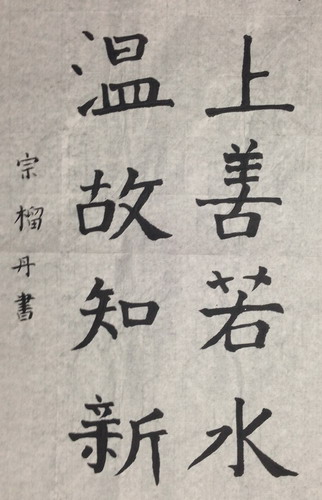 上善若水
温故知新
宗榴丹書